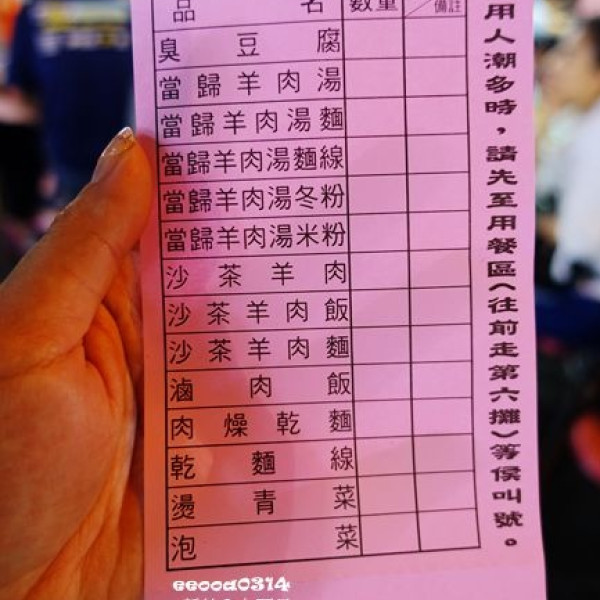 品名 數量 備註
臭豆腐
當歸羊肉湯
當歸羊肉湯麵
當歸羊肉湯麵線
當歸羊肉湯冬粉
當歸羊肉湯米粉
沙茶羊肉
沙茶羊肉飯
沙茶羊肉麵
滷肉飯
肉燥乾麵
乾麵線
燙青菜
泡菜
用人潮多時，請先至用餐區(往前走第六攤)等候叫號。
eeooa0314